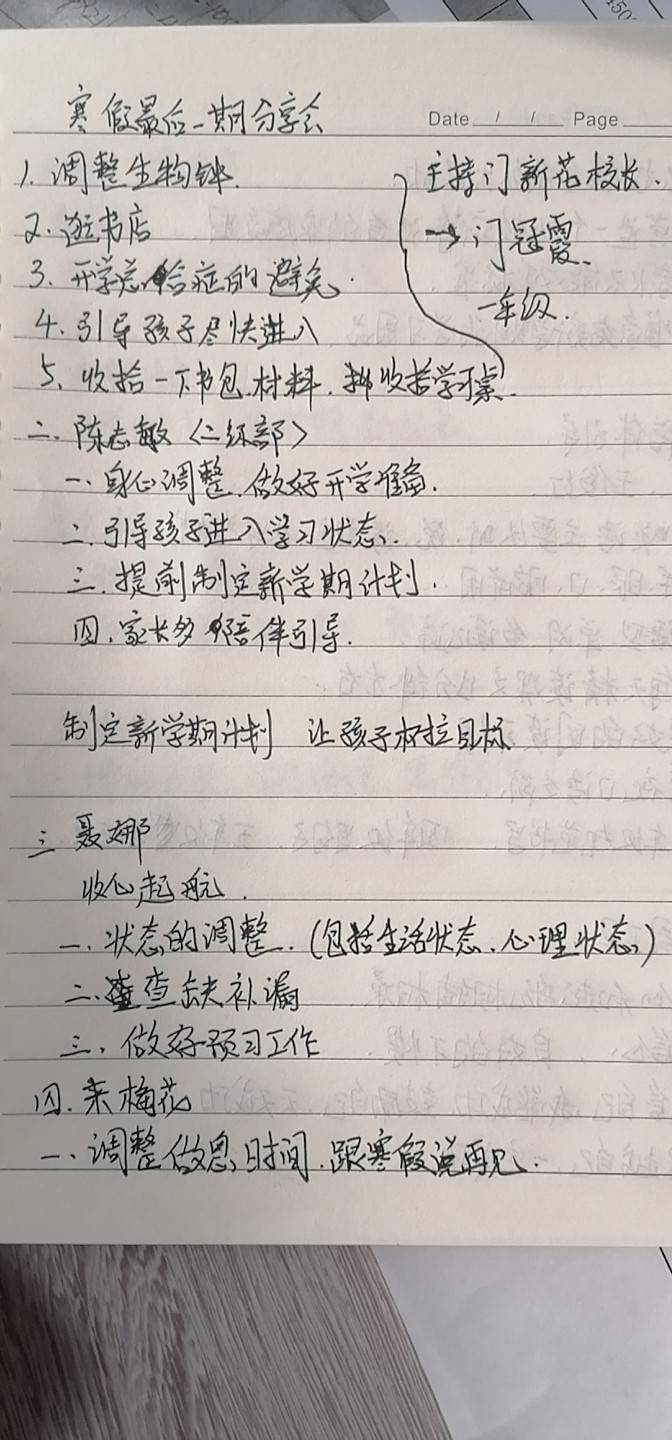 寒假最后一期分享会
Date / / Page
1. 调整生物钟.
主持门新花校长.
2. 逛书店
→门冠霞.
3. 开学恐怕症的避免.
一年级.
4. 引导孩子尽快进入
5. 收拾一下书包.材料.收拾学习桌.
二. 陈志敏〈二级部〉
一. 身心调整.做好开学准备.
二. 引导孩子进入学习状态.
三. 提前制定新学期计划.
四. 家长多陪伴引导.
制定新学期计划 让孩子树拉目标
三 聂娜
收心起航.
一. 状态的调整.(包括生活状态.心理状态)
二. 查缺补漏
三. 做好预习工作
四. 来梅花
一. 调整做息时间.跟寒假说再见.